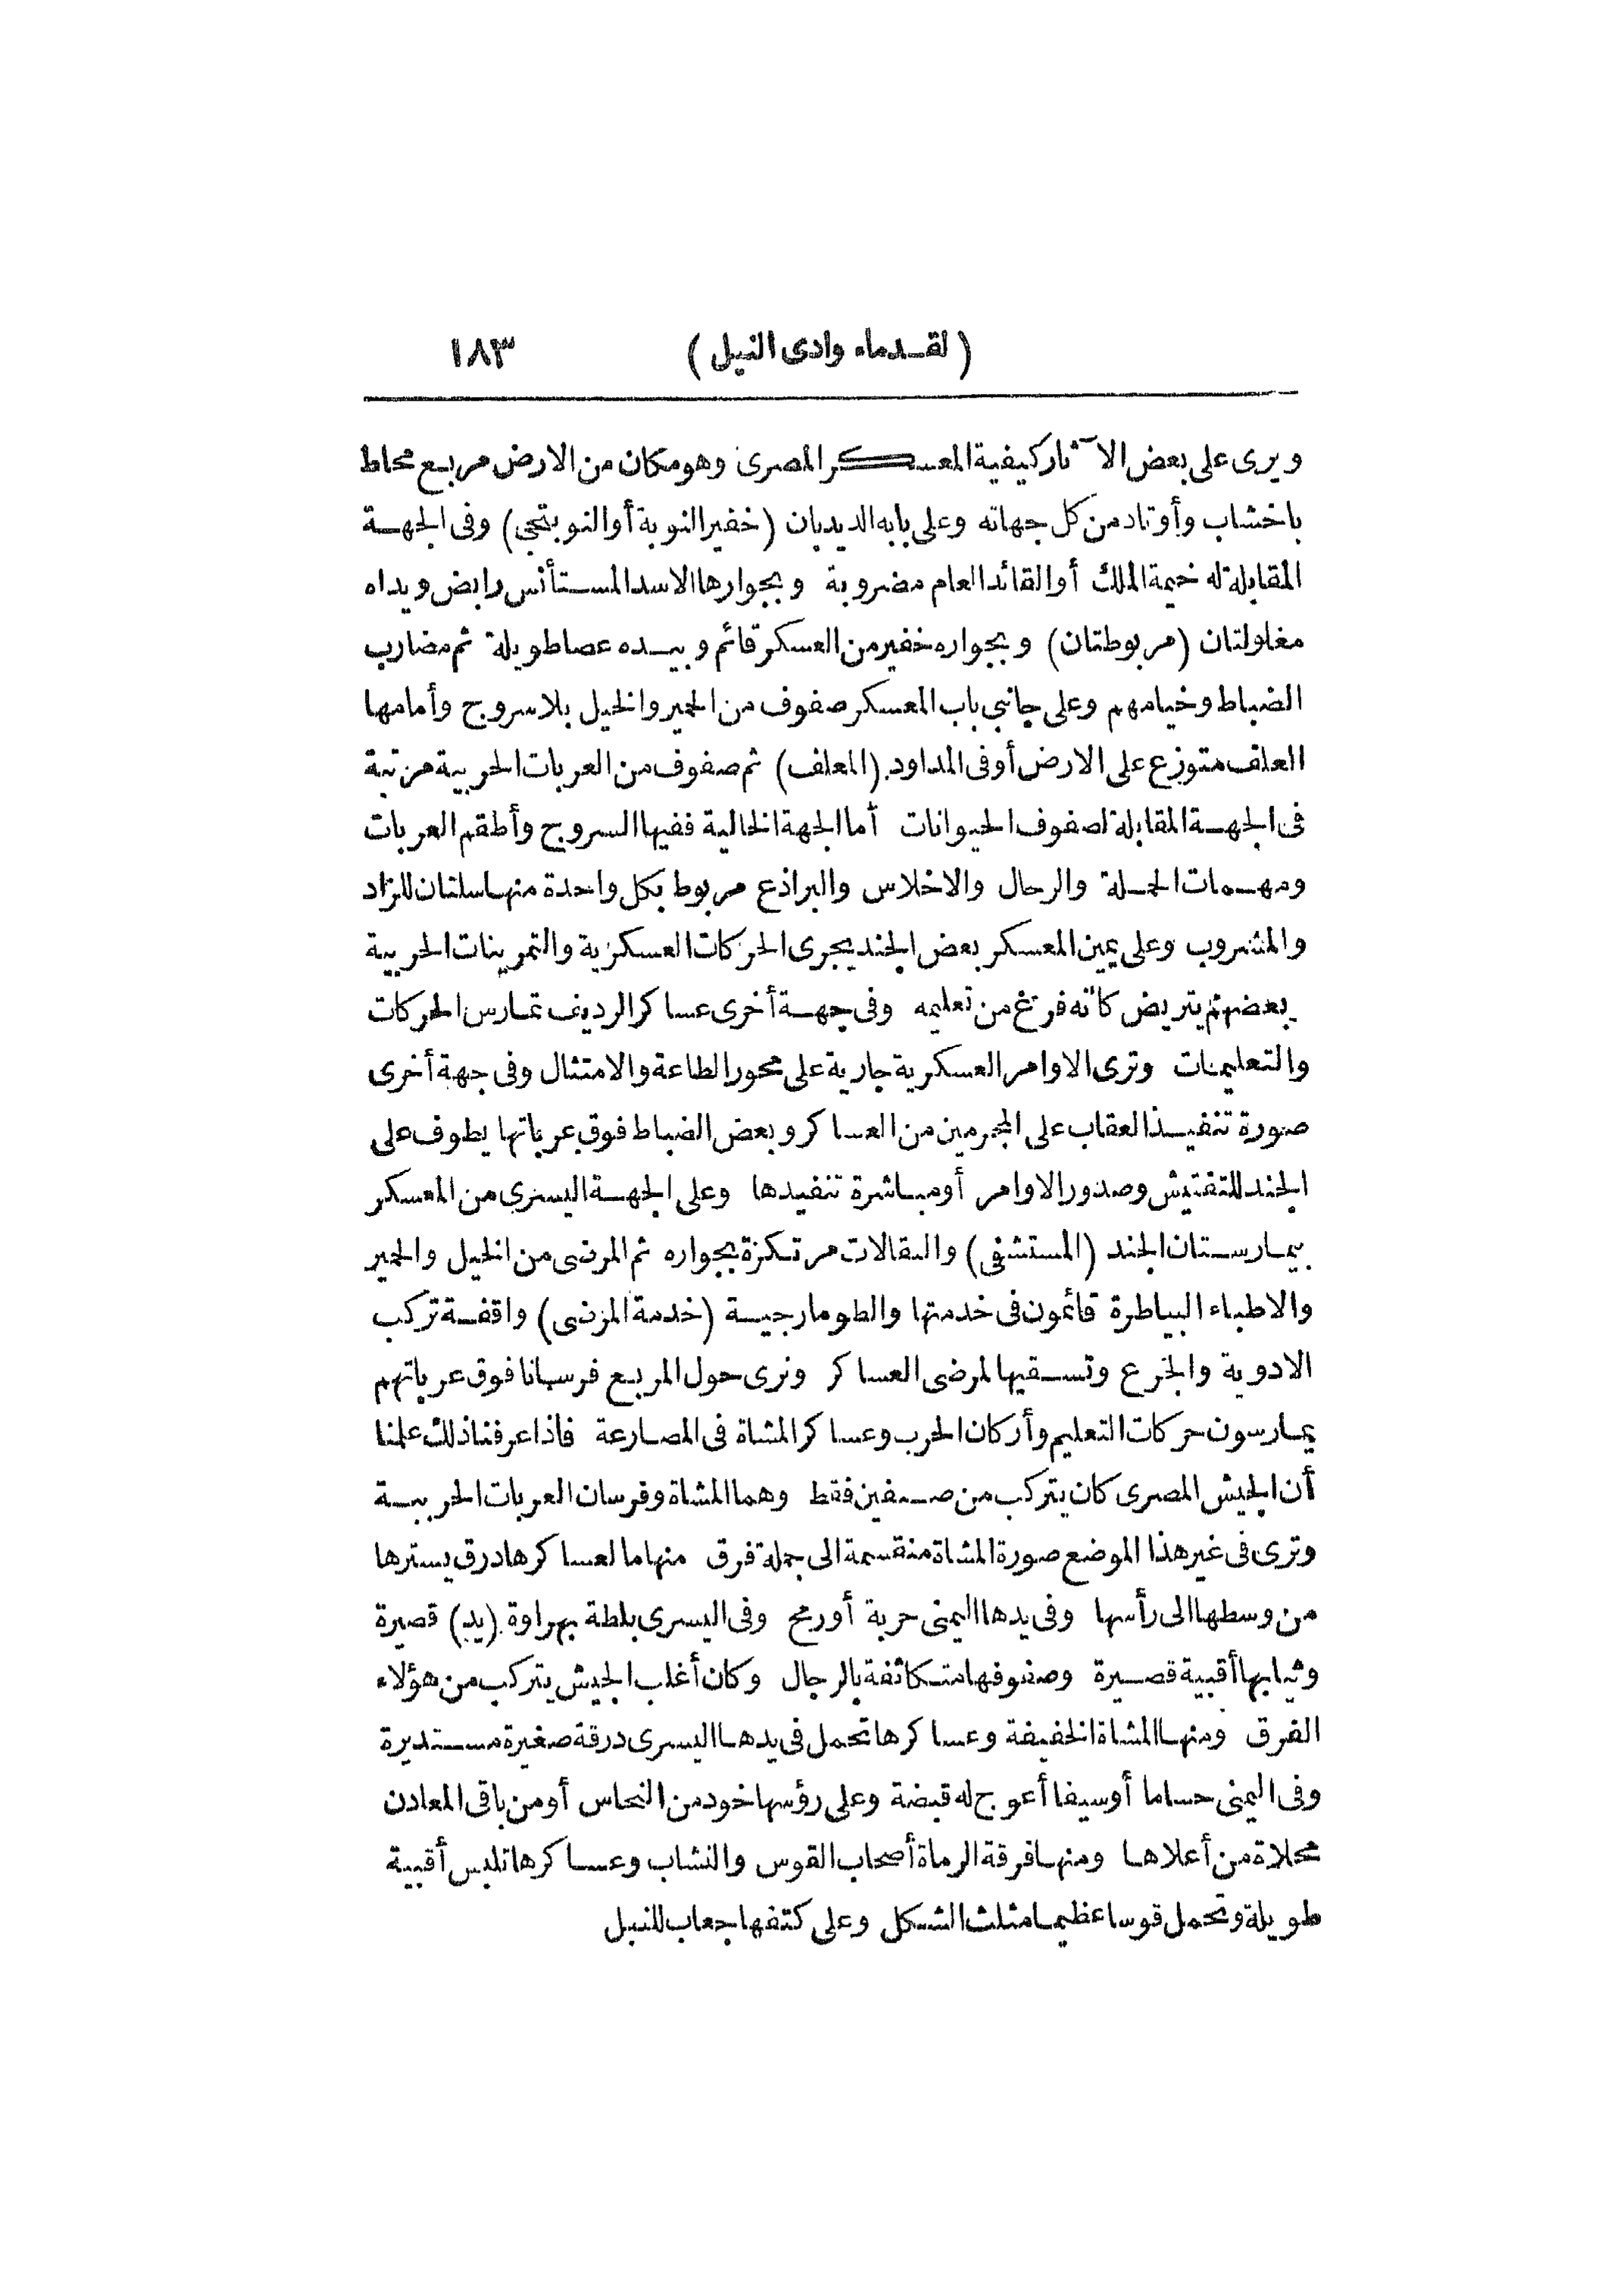 (لقدماء وادى النيل) ١٨٣
ويرى على بعض الآثار كيفية المعسكر المصرى وهو مكان من الارض مربع محاط
باخشاب وأوتاد من كل جهاته وعلى بابه الديدبان (خفير النوبة أو النوبتجى) وفى الجهة
المقابلة له خيمة الملك أو القائد العام مضروبة وبجوارها الاسد المستأنس رابض ويداه
مغلولتان (مربوطتان) وبجواره خفير من العسكر قائم وبيده عصا طويلة ثم مضارب
الضباط وخيامهم وعلى جانبى باب المعسكر صفوف من الحمير والخيل بلا سروج وأمامها
العلف متوزع على الارض أو فى المداود (المعلف) ثم صفوف من العربات الحربية مرتبة
فى الجهة المقابلة لصفوف الحيوانات أما الجهة الخالية ففيها السروج وأطقم العربات
ومهمات الحملة والرحال والاحلاس والبراذع مربوط بكل واحدة منها سلتان للزاد
والمشروب وعلى يمين المعسكر بعض الجند يجرى الحركات العسكرية والتمرينات الحربية
بعضهم يتريض كأنه فرغ من تعليمه وفى جهة أخرى عساكر الرديف تمارس الحركات
والتعليمات وترى الاوامر العسكرية جارية على محور الطاعة والامتثال وفى جهة أخرى
صورة تنفيذ العقاب على المجرمين من العساكر وبعض الضباط فوق عرباتها يطوف على
الجند للتفتيش وصدور الاوامر أو مباشرة تنفيدها وعلى الجهة اليسرى من المعسكر
بيمارستان الجند (المستشفى) والنقالات مرتكزة بجواره ثم المرضى من الخيل والحمير
والاطباء البياطرة قائمون فى خدمتها والطومارجية (خدمة المرضى) واقفة تركب
الادوية والجرع وتسقيها لمرضى العساكر ونرى حول المربع فرسانا فوق عرباتهم
يمارسون حركات التعليم وأركان الحرب وعساكر المشاة فى المصارعة فاذا عرفنا ذلك علمنا
أن الجيش المصرى كان يتركب من صنفين فقط وهما المشاة وفرسان العربات الحربية
وترى فى غير هذا الموضع صورة المشاة منقسمة الى جملة فرق منها ما لعساكرها درق يسترها
من وسطها الى رأسها وفى يدها اليمنى حربة أو رمح وفى اليسرى بلطة بهراوة (يد) قصيرة
وثيابها أقبية قصيرة وصفوفها متكاثفة بالرجال وكان أغلب الجيش يتركب من هؤلاء
الفرق ومنها المشاة الخفيفة وعساكرها تحمل فى يدها اليسرى درقة صغيرة مستديرة
وفى اليمنى حساما أو سيفا أعوج له قبضة وعلى رؤسها خود من النحاس أو من باقى المعادن
محلاة من أعلاها ومنها فرقة الرماة أصحاب القوس والنشاب وعساكرها تلبس أقبية
طويلة وتحمل قوسا عظيما مثلث الشكل وعلى كتفها جعاب للنبل